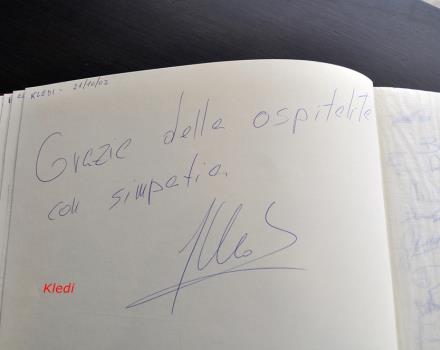 KLEDI - 21/10/02
Grazie della ospitalità
con simpatia
Kledi